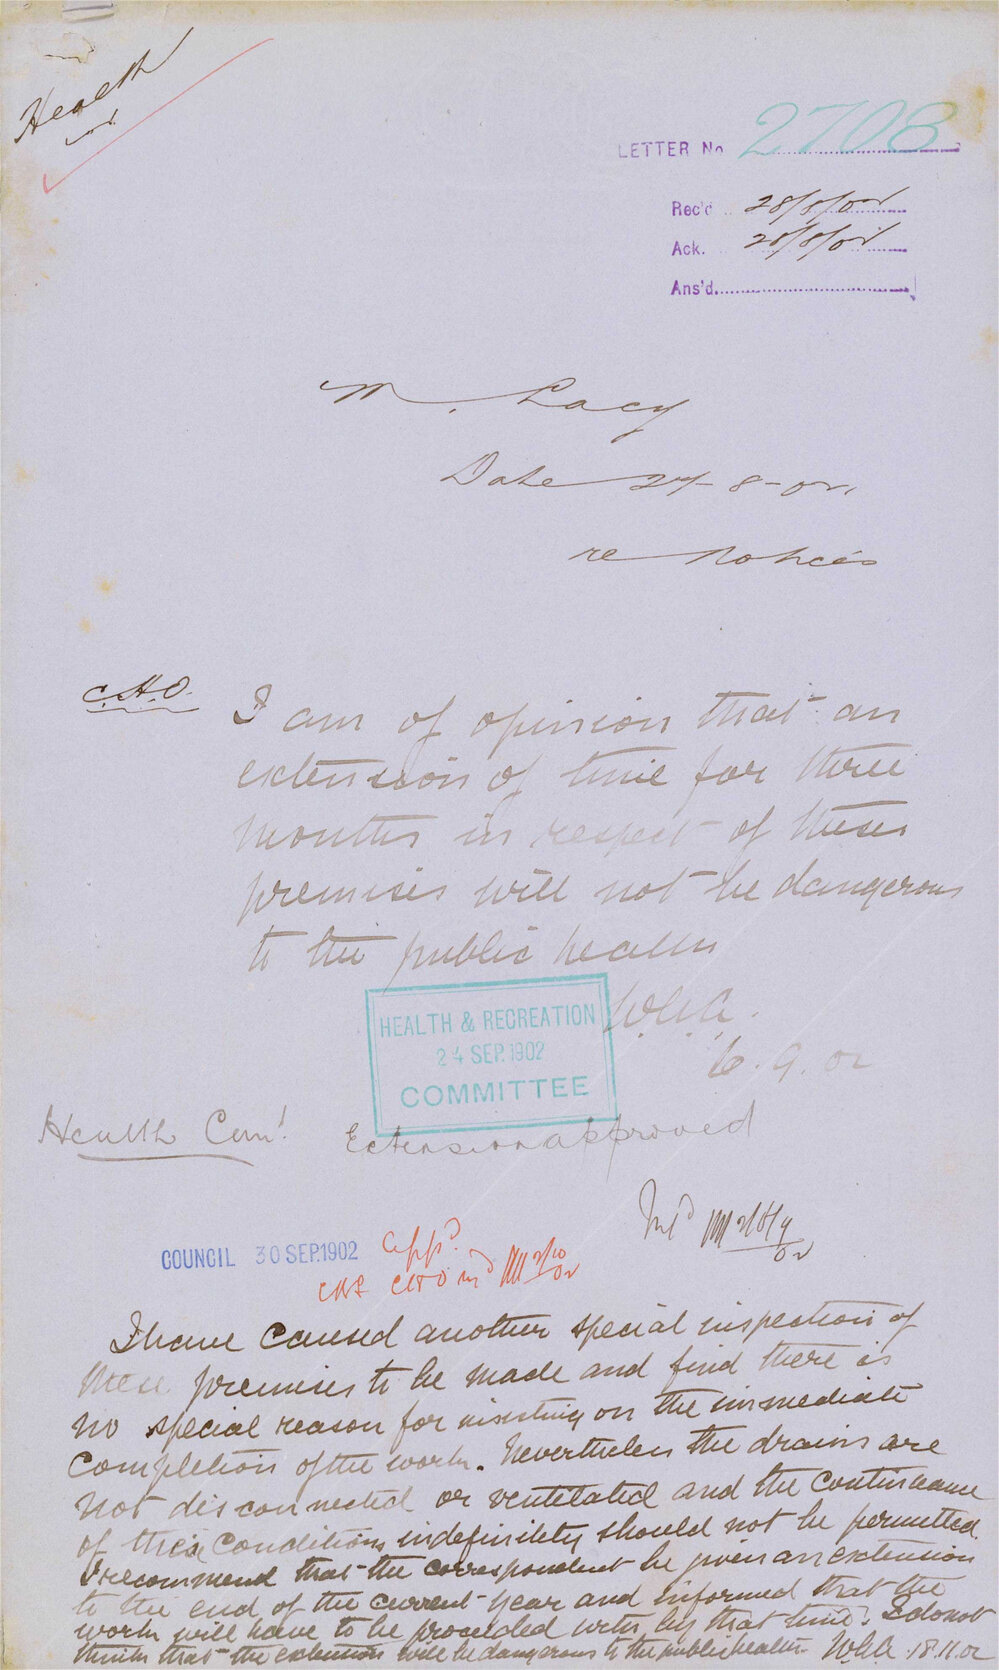 Health
LETTER No 2708
Rec'd 28/8/02
Ack. 28/8/02
Ans'd.
M. Lacy
Date 27-8-02.
re Notices
C.H.O.
I am of opinion that an
extension of time for three
months in respect of these
premises will not be dangerous
to the public health
W.G.A.
6.9.02
HEALTH & RECREATION
24 SEP. 1902
COMMITTEE
Health Com! Extension approved
COUNCIL 30 SEP. 1902 app'd.
I have caused another special inspection of
these premises to be made and find there is
no special reason for insisting on the immediate
completion of the work. Nevertheless the drains are
not disconnected or ventilated and the continuance
of these conditions indefinitely should not be permitted.
I recommend that the correspondent be given an extension
to the end of the current year and informed that the
work will have to be proceeded with by that time. I do not
think that the extension will be dangerous to the public health. W.G.A. 18.11.02